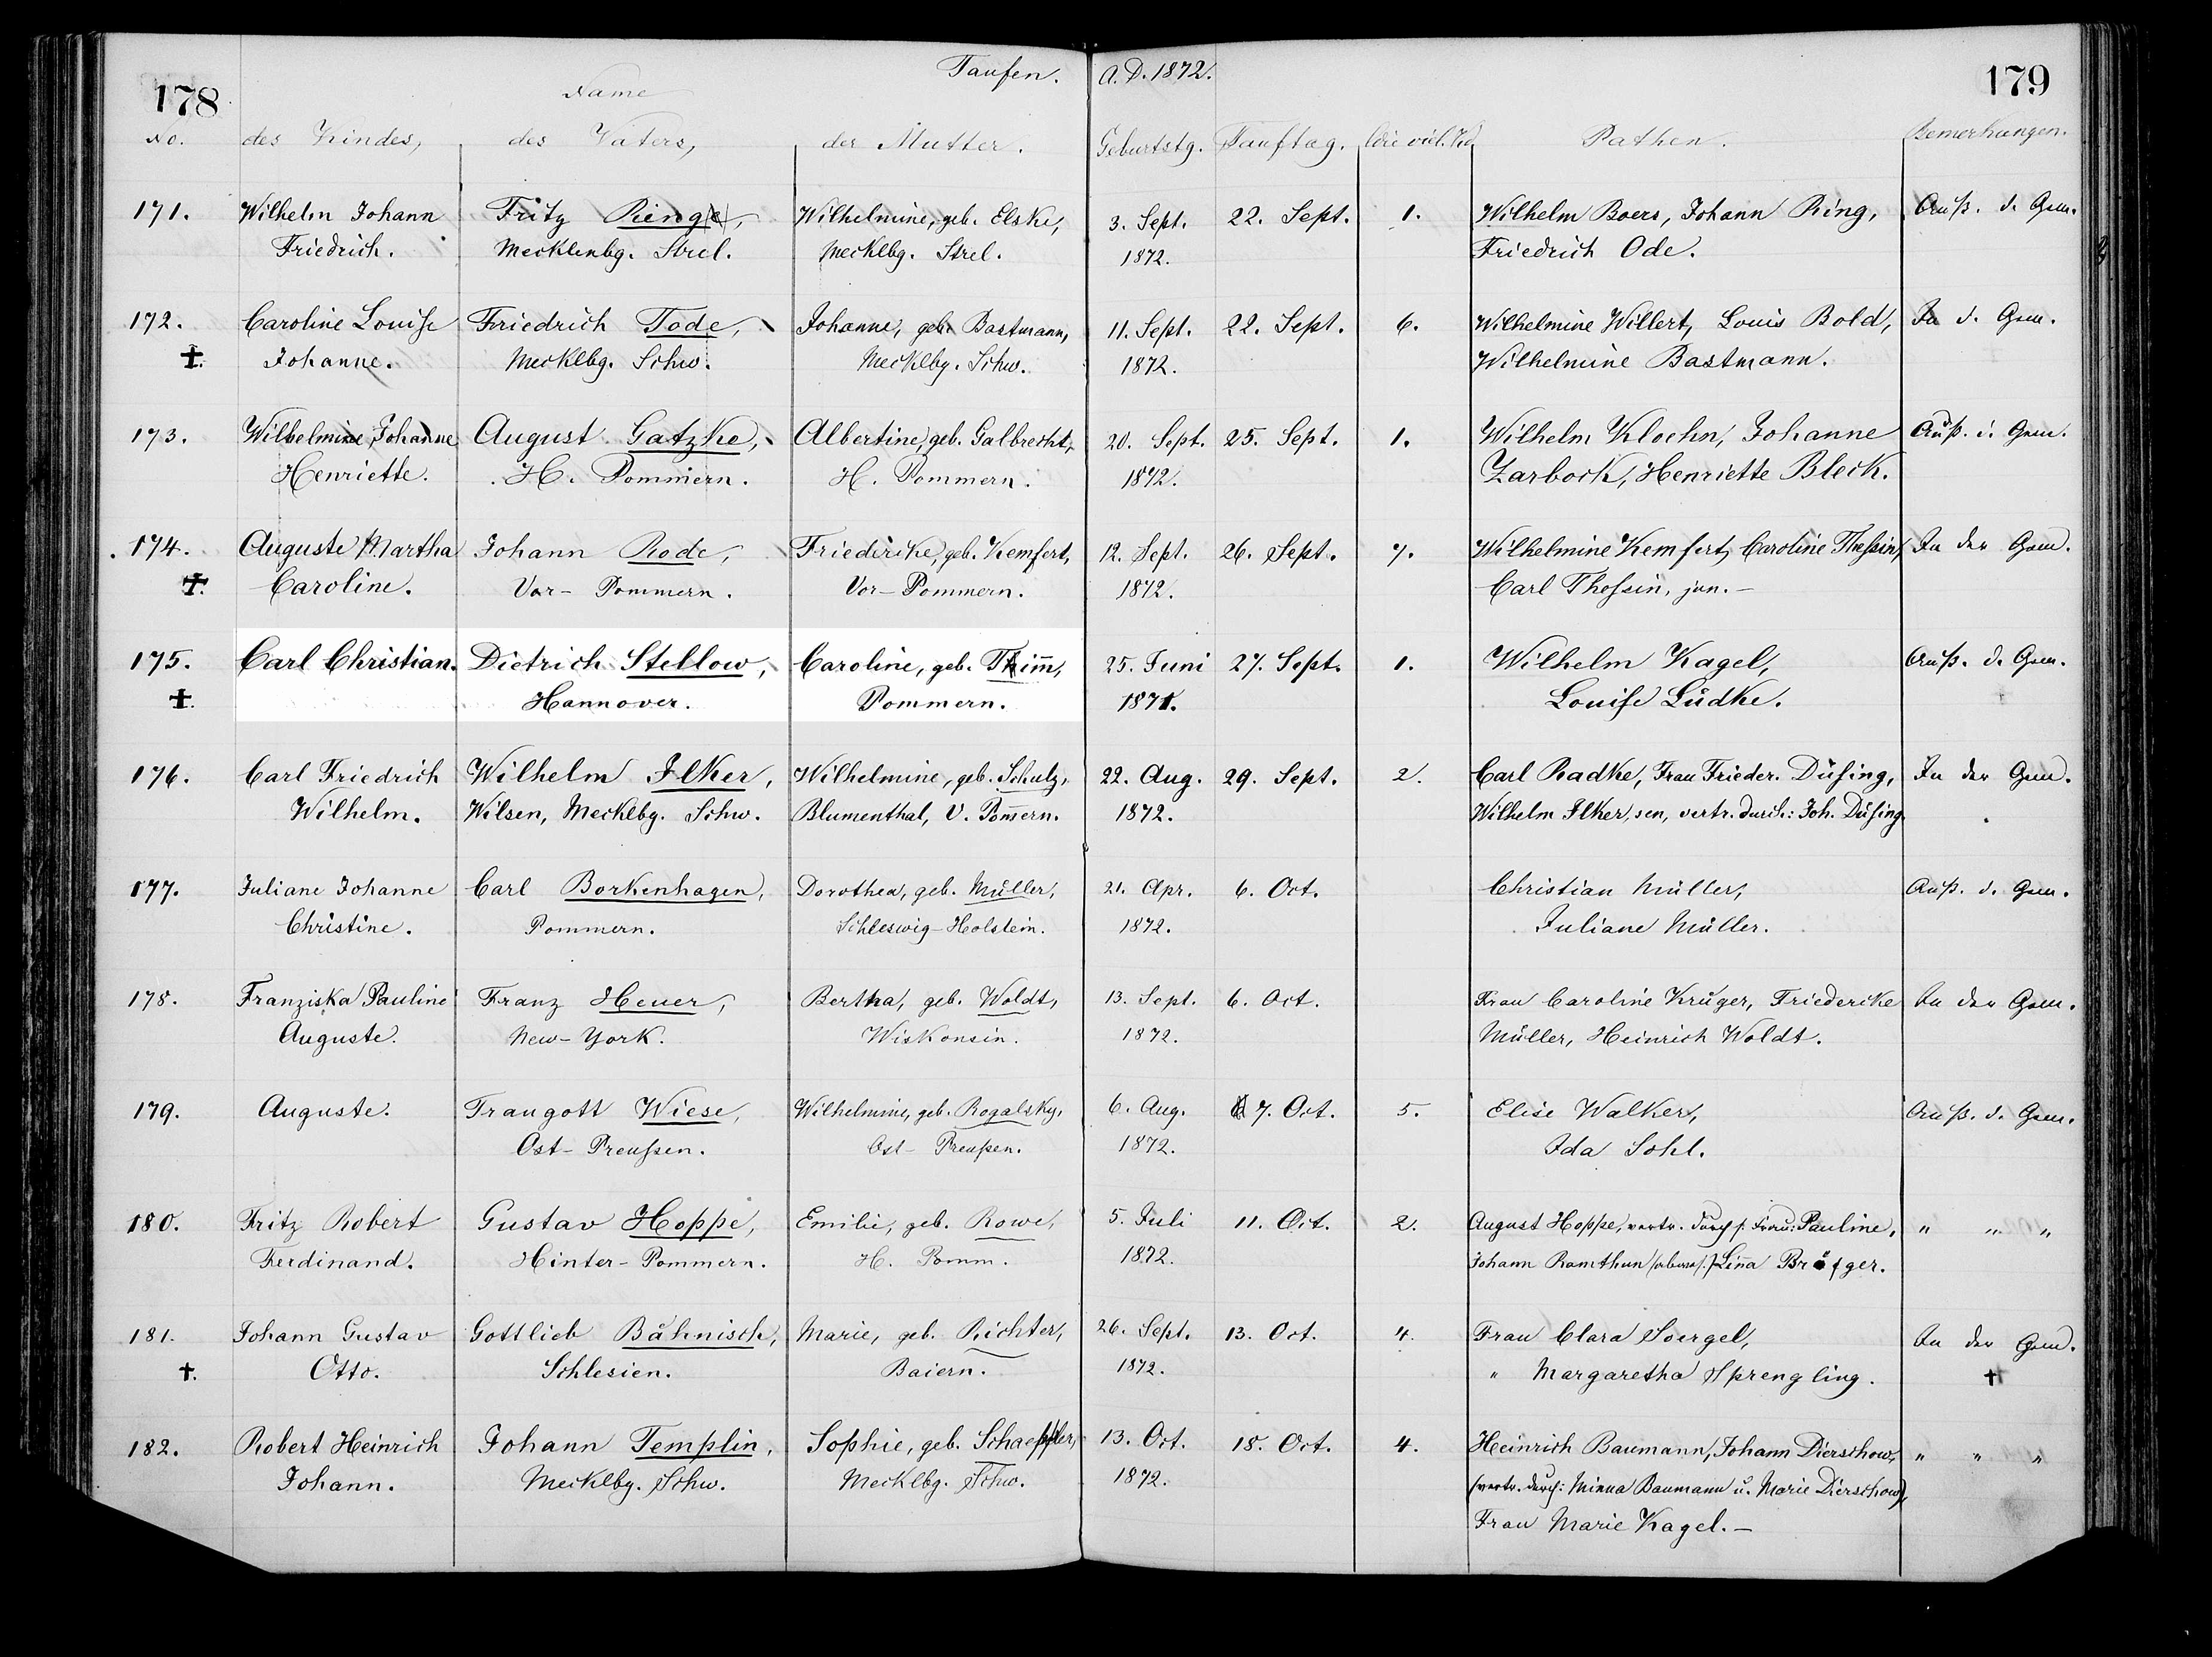 178
Taufen.
A. D. 1872.
179
Name
No.
des Kindes,
des Vaters,
der Mutter.
Geburtstg.
Tauftag.
Wie viel. Kd
Pathen.
Bemerkungen.
171.
Wilhelm Johann
Fritz Ringe,
Wilhelmine, geb. Elske,
3. Sept.
22. Sept.
1.
Wilhelm Boers, Johann Ring,
Auß. d. Gem.
Friedrich.
Mecklenbg. Strel.
Mecklbg. Strel.
1872.
Friedrich Ode.
172.
Caroline Louise
Friedrich Tode,
Johanne, geb. Bastmann,
11. Sept.
22. Sept.
6.
Wilhelmine Willert, Louis Bold,
In d. Gem.
✝.
Johanne.
Mecklbg. Schw.
Mecklbg. Schw.
1872.
Wilhelmine Bastmann.
173.
Wilhelmine Johanne
August Gatzke,
Albertine, geb. Galbrecht,
20. Sept.
25. Sept.
1.
Wilhelm Kloehn, Johanne
Auß. d. Gem.
Henriette.
H. Pommern.
H. Pommern.
1872.
Zarbock, Henriette Bleck.
174.
Auguste Martha
Johann Rode,
Friedericke, geb. Kemfert,
12. Sept.
26. Sept.
7.
Wilhelmine Kemfert, Caroline Theßin,
In der Gem.
✝.
Caroline.
Vor-Pommern.
Vor-Pommern.
1872.
Carl Theßin, jun. –
175.
Carl Christian.
Dietrich Stellow,
Caroline, geb. Thim̅,
25. Juni
27. Sept.
1.
Wilhelm Kagel,
Auß. d. Gem.
✝.
Hannover.
Pommern.
1871.
Louise Lüdke.
176.
Carl Friedrich
Wilhelm Ilker,
Wilhelmine, geb. Schulz,
22. Aug.
29. Sept.
2.
Carl Radke, Frau Frieder. Düsing,
In der Gem.
Wilhelm.
Wilsen, Mecklbg. Schw.
Blumenthal, V. Pom̅ern.
1872.
Wilhelm Ilker, sen, vertr. durch: Joh. Düsing
177.
Juliane Johanne
Carl Borkenhagen,
Dorothea, geb. Müller,
21. Apr.
6. Oct.
Christian Müller,
Auß. d. Gem.
Christine.
Pommern.
Schleswig-Holstein.
1872.
Juliane Müller.
178.
Franziska Pauline
Franz Heuer,
Bertha, geb. Woldt,
13. Sept.
6. Oct.
Frau Caroline Krüger, Friedericke
In der Gem.
Auguste.
New-York.
Wiskonsin.
1872.
Müller, Heinrich Woldt.
179.
Auguste.
Traugott Wiese,
Wilhelmine, geb. Rogalsky,
6. Aug.
7. Oct.
5.
Elise Walker,
Auß. d. Gem.
Ost-Preußen.
Ost-Preußen.
1872.
Ida Sohl.
180.
Fritz Robert
Gustav Hoppe,
Emilie, geb. Rowe,
5. Juli
11. Oct.
2.
August Hoppe, vertr. durch s. Frau: Pauline,
" " "
Ferdinand.
Hinter-Pommern.
H. Pomm.
1872.
Johann Ramthun Lin̅a
181.
Johann Gustav
Gottlieb Bähnisch,
Marie, geb. Richter,
26. Sept.
13. Oct.
4.
Frau Clara Soergel,
In der Gem.
✝.
Otto.
Schlesien.
Baiern.
1872.
" Margaretha Sprengling.
✝
182.
Robert Heinrich
Johann Templin,
Sophie, geb. Schaeffler,
13. Oct.
18. Oct.
4.
Heinrich Baumann, Johann Dierschow,
" " "
Johann.
Mecklbg. Schw.
Mecklbg. Schw.
1872.
(vertr. durch: Minna Baumann u. Marie Dierschow),
Frau Marie Kagel. –